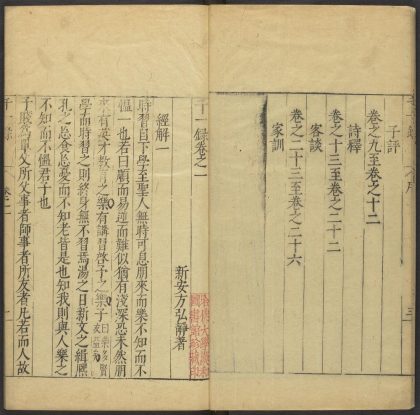 子評
卷之九至卷之十二
詩釋
卷之十三至卷之二十二
客談
卷之二十三至卷之二十六
家訓
千一錄卷之一
新安方弘靜著
哈佛大學漢和
圖書館珍藏印
經解一
時習自下學至聖人無時可息朋來樂不知而不
慍一也若曰順而易逆而難似猶有淺深恐未然朋
來有英才教育之樂有講習啓予之樂
學而時習之則終身無不習焉湯之日新文之緝熙
孔之忘食忘憂而不知老皆是也知我則與人樂之
不知而不慍君子也
子賤為單父所父事者師事者所友者凡若而人故